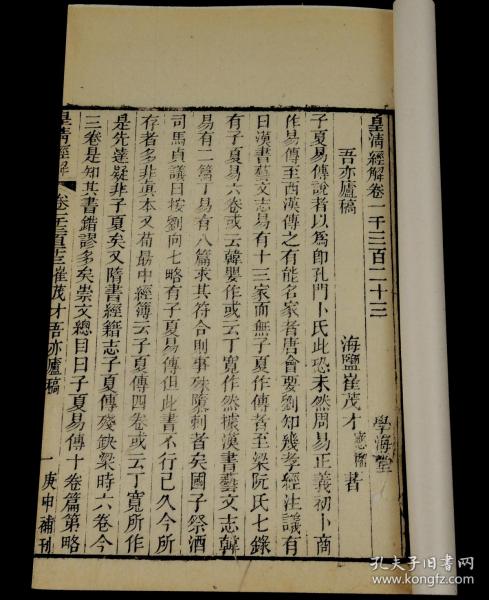 皇清經解卷一千三百二十三　學海堂
吾亦廬稿　海鹽崔茂才應榴著
子夏易傳說者以爲卽孔門卜氏此恐未然周易正義初卜商
作易傳至西漢傳之有能名家者唐會要劉知幾孝經注議有
曰漢書藝文志易有十三家而無子夏作傳者至梁阮氏七錄
有子夏易六卷或云韓嬰作或云丁寬作然據漢書藝文志韓
易有二篇丁易有八篇求其符合則事殊隳剌者矣國子祭酒
司馬貞議曰按劉向七略有子夏易傳但此書不行已久今所
存者多非眞本又荀勗中經簿云子夏傳四卷或云丁寬所作
是先達疑非子夏矣又隋書經籍志子夏傳殘缺梁時六卷今
三卷是知其書錯謬多矣崇文總目曰子夏易傳十卷篇第略
皇清經解　崔茂才吾亦廬稿　一　庚申補刊
孔夫子旧书网
book.kongfz.com